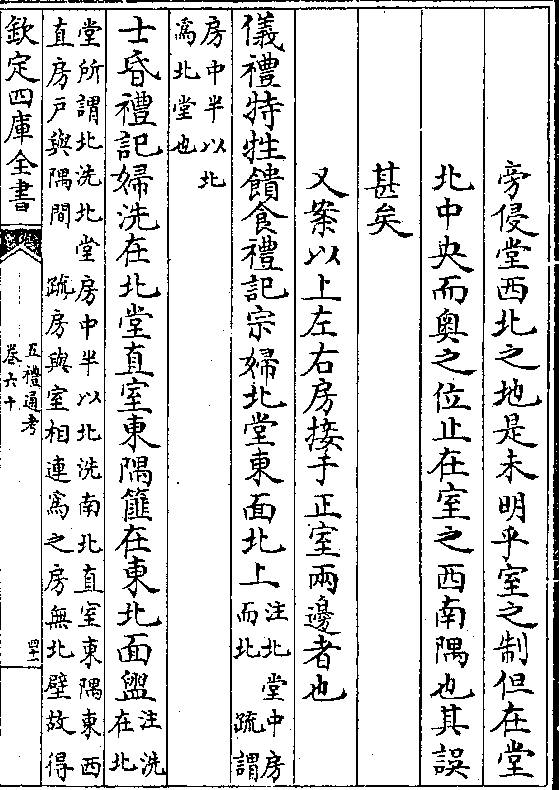 旁侵堂西北之地是未明乎室之制但在堂
北中央而奥之位止在室之西南隅也其誤
甚矣
又案以上左右房接于正室兩邊者也
儀禮特牲饋食禮記宗婦北堂東面北上
注北堂中房
而北 疏謂
房中半以北
為北堂也
士昏禮記婦洗在北堂直室東隅篚在東北面盥
注洗
在北
堂所謂北洗北堂房中半以北洗南北直室東隅東西
直房戶與隅間 疏房與室相連為之房無北壁故得
欽定四庫全書
五禮通考
卷六十
四十二